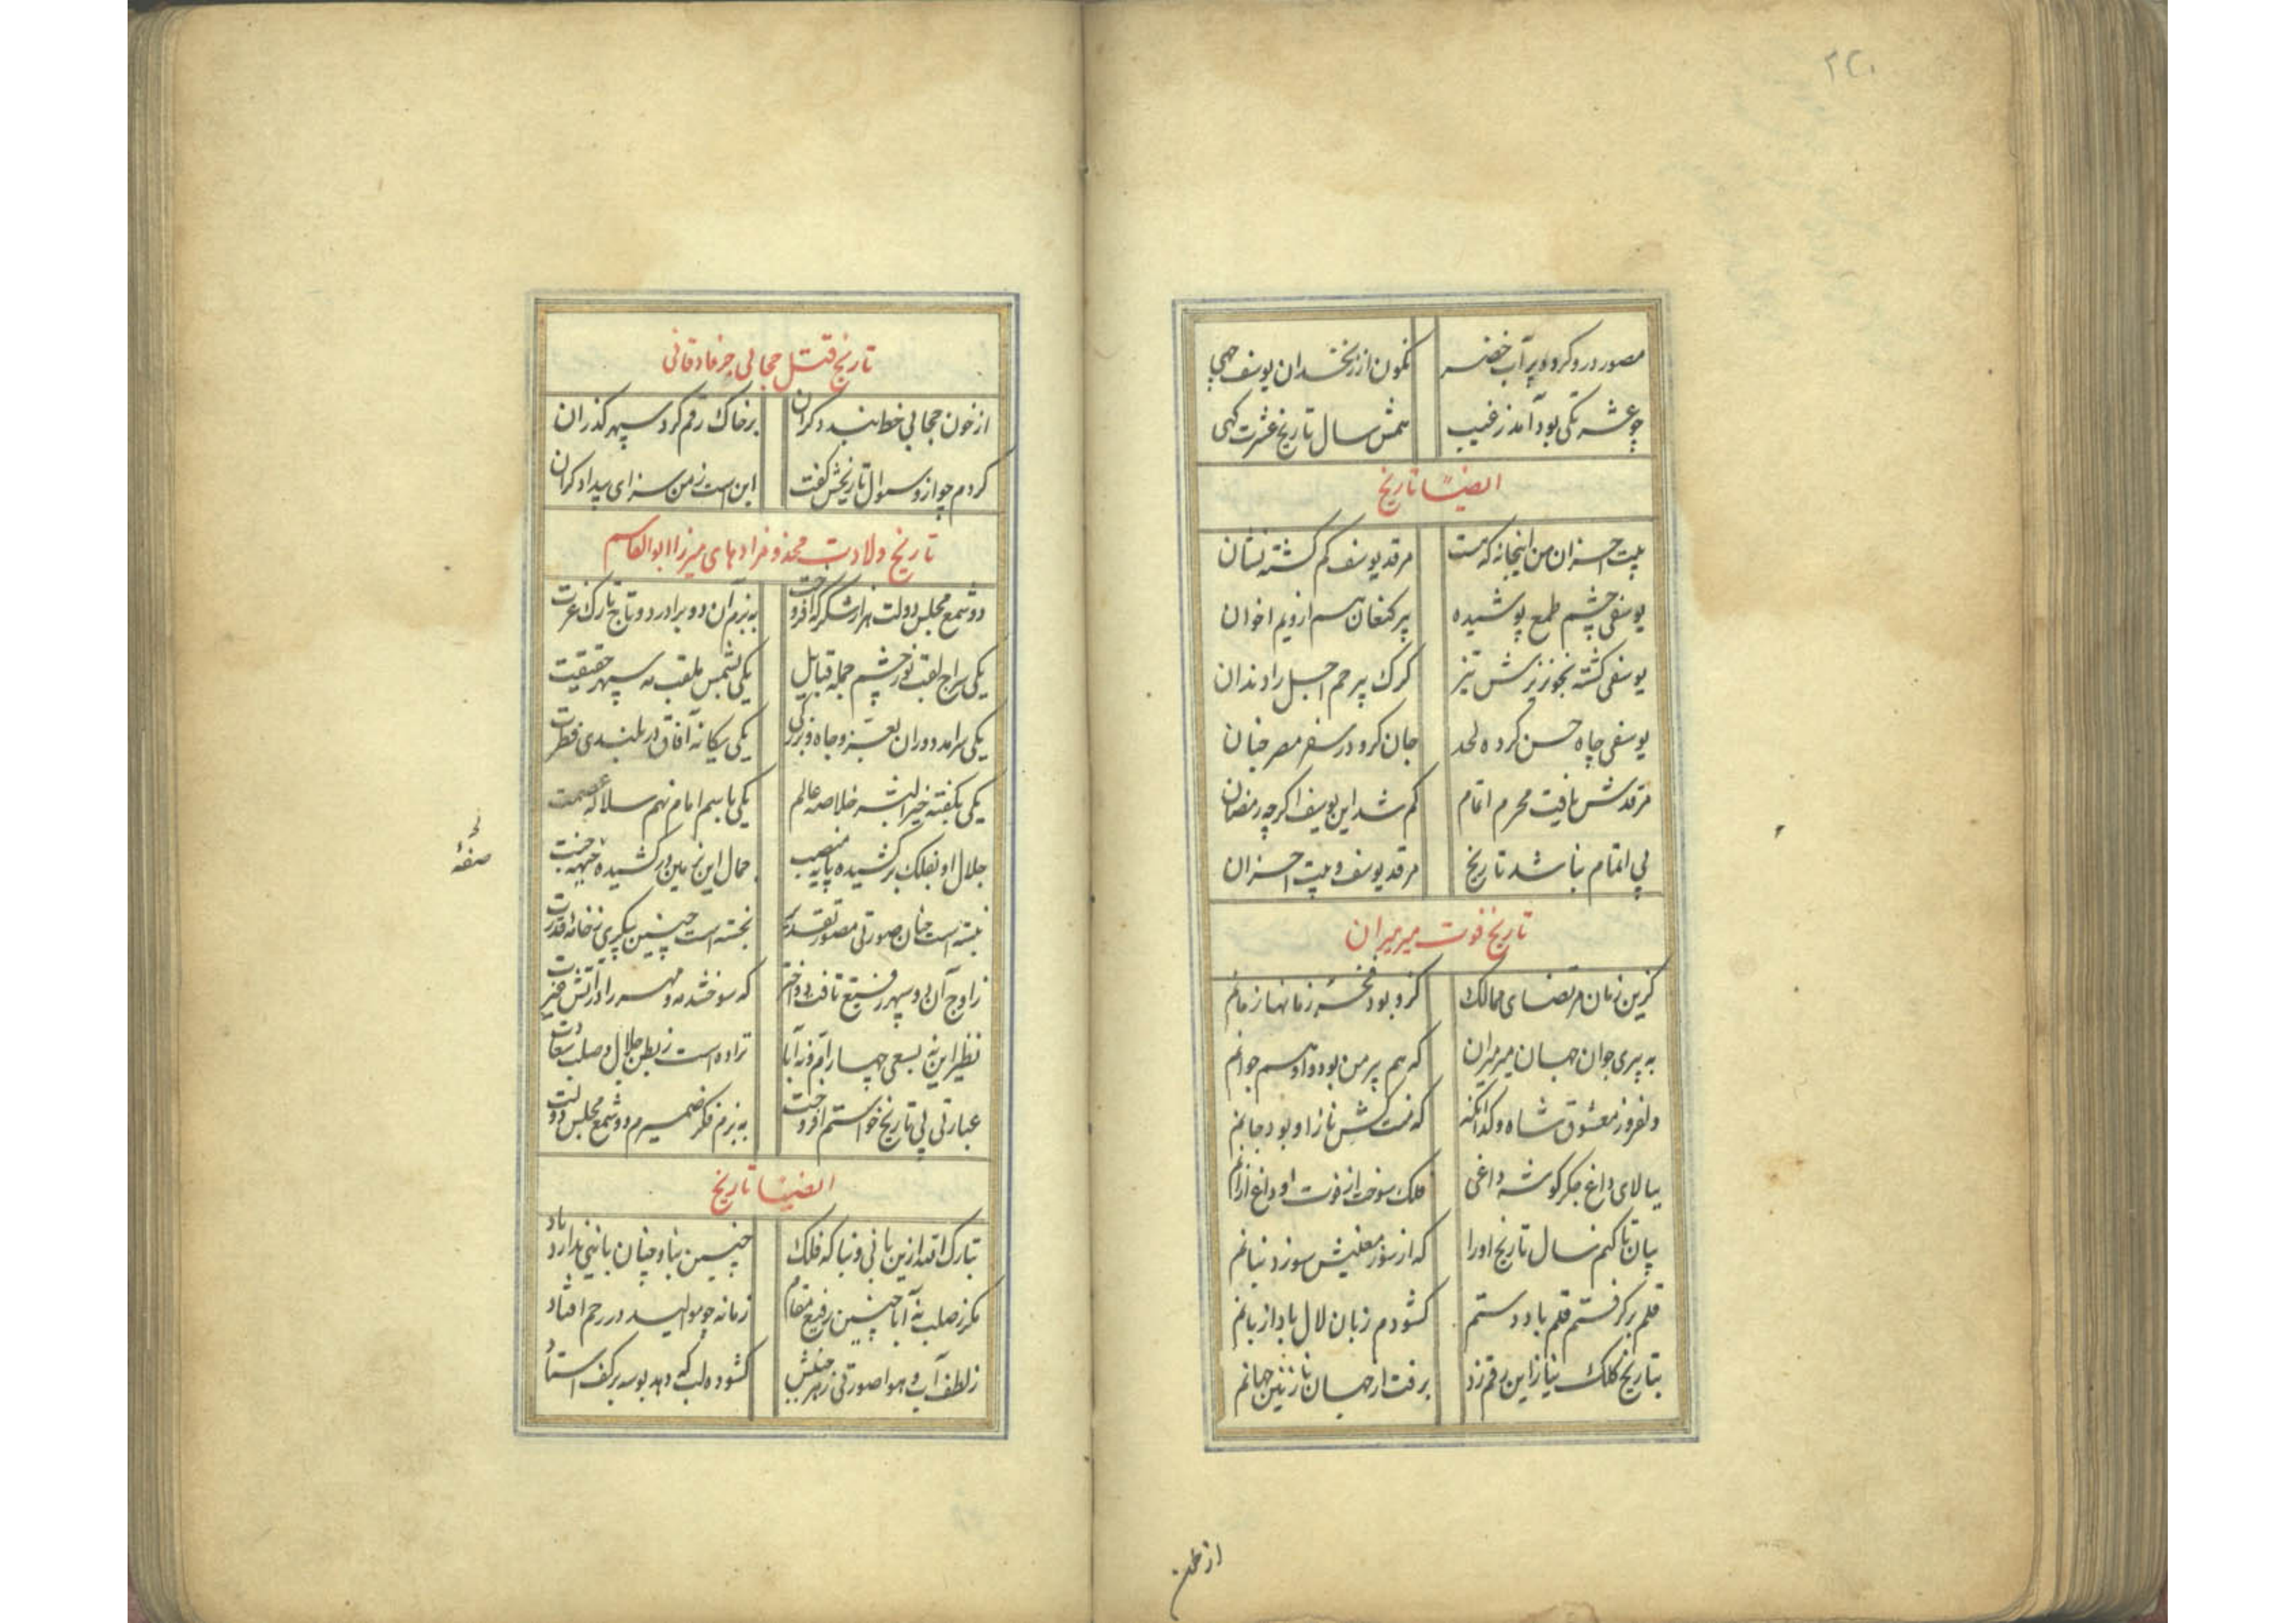 ۲۲۰
مصور در و کرده پر آب خضر نگون از زنخدان یوسف چهی
چو عشرتگهی بود آمد ز غیب همش سال تاریخ عشرت گهی
ایضا تاریخ
بیت احزان من اینخانه که هست مرقد یوسف گم گشته نشان
یوسفی چشم طمع پوشیده پیر کنعان هم ازو هم اخوان
یوسفی گشته بخونریزش تیز گرگ بیرحم اجل را دندان
یوسفی چاه حسن کرده لحد جان گرو در سفر مصر جنان
مرقدش یافت محرم اتمام گم شد این یوسف اگرچه رمضان
پی اتمام بنا شد تاریخ مرقد یوسف و بیت احزان
تاریخ فوت میرمیران
گزین زمان مرتضای ممالک کزو بود فخر زمانها زمانم
به پیری جوان جهان میرمیران که هم پیر من بود و او هم جوانم
دلفروز معشوق شاه و گدا آنکه که منت کش ناز او بود جانم
ببالای داغ جگرگوشه داغی فلک سوخت از فوت او داغ ازانم
بیان تا کنم سال تاریخ او را که از سوز معنیش سوزد بیانم
قلم برگرفتم قلم باد دستم گشودم زبان لال باد از بیانم
بتاریخ کلک نیاز این رقم زد برفت از جهان نازنین جهانم
تاریخ قتل حجابی جرفادقانی
از خون حجابی خط بیدادگران بر خاک رقم کرد سپهر گذران
کردم چو ازو سوال تاریخش گفت این است ز من سزای بیدادگران
تاریخ ولادت مخدوم‌زادهای میرزا ابوالقاسم
دو شمع مجلس دولت هزار شکر که افروخت به بزم آن دو برادر دو تاج تارک عزت
یکی سراج لقب نور چشم جمله قبایل یکی بشمس ملقب مه سپهر حقیقت
یکی سرآمد دوران بعز و جاه و بزرگی یکی یگانه آفاق در بلندی فطرت
یکی بکنیت خیر البشر خلاصه عالم یکی باسم امام نهم سلاله عصمت
جلال او بفلک برکشیده پایه منصب جمال این بزمین درکشیده جبهه جنت
نبسته است چنان صورتی مصور تقدیر نجسته است چنین پیکری ز خانه قدرت
ز اوج آن دو سپهر رفیع تافت دو اختر که سوختند مه و مهر را در آتش غیرت
نظیر این نه بسعی چهار ام و نه آبا نزاده است ز بطن جلال و صلب سعادت
عبارتی پی تاریخ خواستم افروخت به بزم فکر ضمیرم دو شمع مجلس دولت
صفهٔ
ایضا تاریخ
تبارک الله ازین بانی و بنا که فلک چنین بنا و چنان بانیی ندارد یاد
مگر ز صلب نه آبا چنین رفیع مقام زمانه چو موالید در رحم افتاد
ز لطف آب و هوا صورتی ز هر جنبش گشوده لب که دهد بوسه بر کف استاد